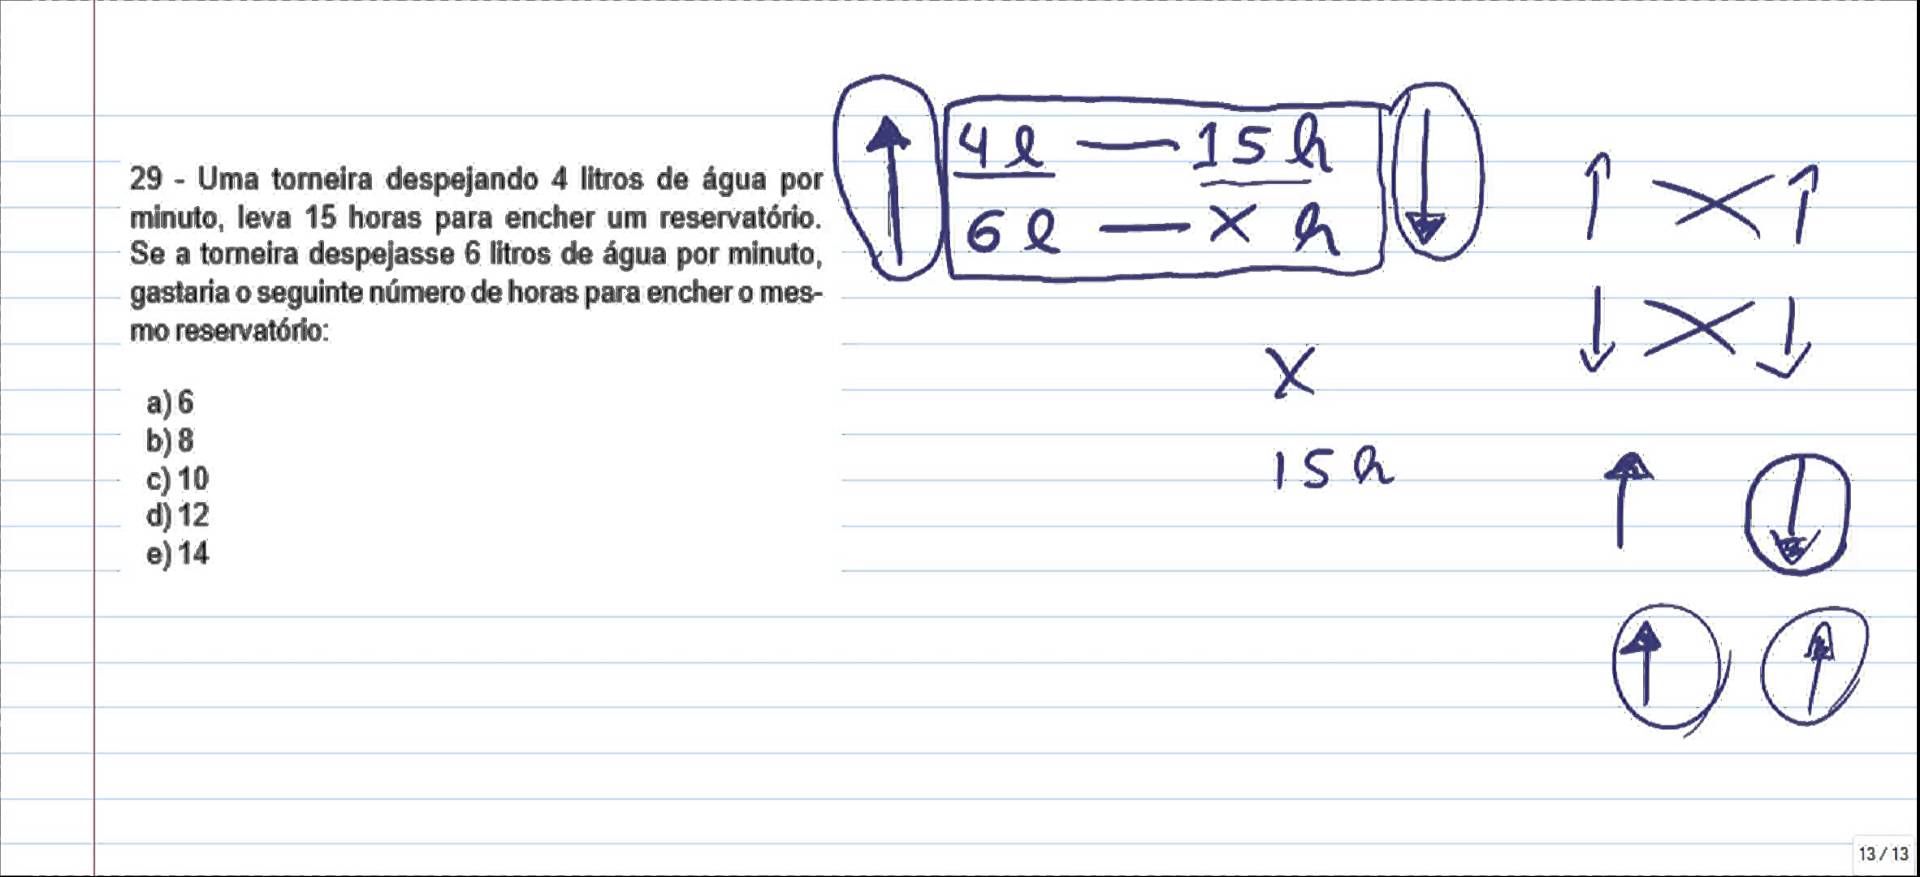 29 - Uma torneira despejando 4 litros de água por
minuto, leva 15 horas para encher um reservatório.
Se a torneira despejasse 6 litros de água por minuto,
gastaria o seguinte número de horas para encher o mes-
mo reservatório:
a) 6
b) 8
c) 10
d) 12
e) 14
4 l — 15 h
6 l — x h
x
15 h
13 / 13